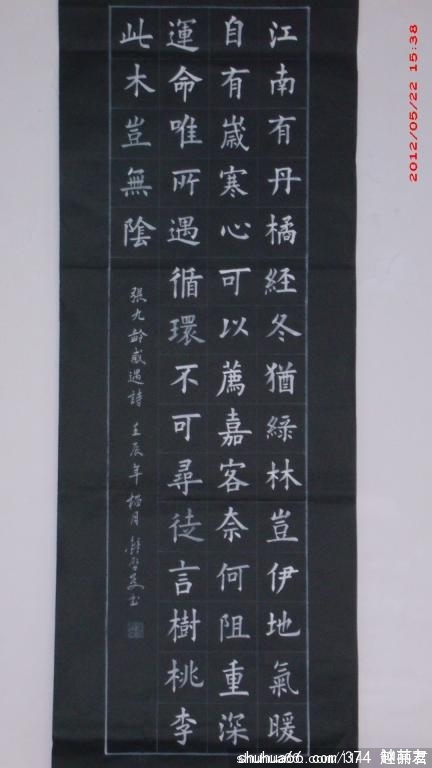 江南有丹橘経冬猶緑林豈伊地氣暖
自有嵗寒心可以薦嘉客奈何阻重深
運命唯所遇循環不可尋徒言樹桃李
此木豈無陰
張九齡感遇詩 壬辰年榴月
2012/05/22 15:38
shuhua66.com/374